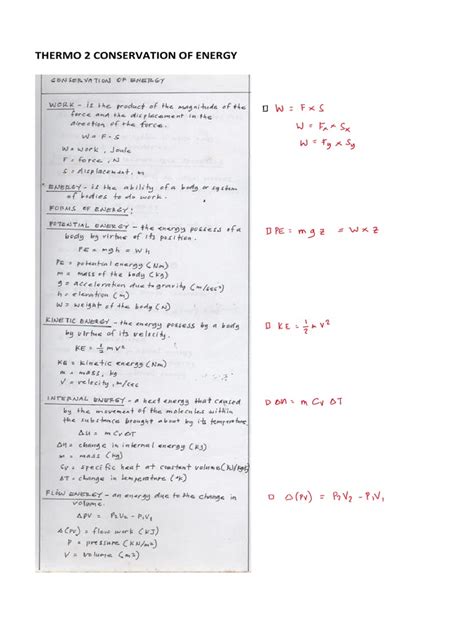 THERMO 2 CONSERVATION OF ENERGY
CONSERVATION OF ENERGY
WORK - is the product of the magnitude of the
force and the displacement in the
direction of the force.
W = F · S
W = work, Joule
F = force, N
S = displacement, m
ENERGY - is the ability of a body or system
of bodies to do work.
FORMS OF ENERGY:
POTENTIAL ENERGY - the energy possess of a
body by virtue of its position.
PE = mgh = Wh
PE = potential energy (Nm)
m = mass of the body (kg)
g = acceleration due to gravity (m/sec²)
h = elevation (m)
W = weight of the body (N)
KINETIC ENERGY - the energy possess by a body
by virtue of its velocity.
KE = 1/2 mV²
KE = kinetic energy (Nm)
m = mass, kg
V = velocity, m/sec
INTERNAL ENERGY - a heat energy that caused
by the movement of the molecules within
the substance brought about by its temperature.
ΔU = m Cv ΔT
ΔU = change in internal energy (KJ)
m = mass (kg)
= specific heat at constant volume
ΔT = change in temperature (°K)
FLOW ENERGY - an energy due to the change in
volume.
ΔPV = P₂V₂ - P₁V₁
Δ(PV) = flow work (KJ)
P = pressure (KN/m²)
V = volume
W = F x S
W = Fx x Sx
W = Fy x Sy
PE = m g z = W x z
KE = 1/2 V²
ΔU = m Cv ΔT
Δ(PV) = P₂V₂ - P₁V₁